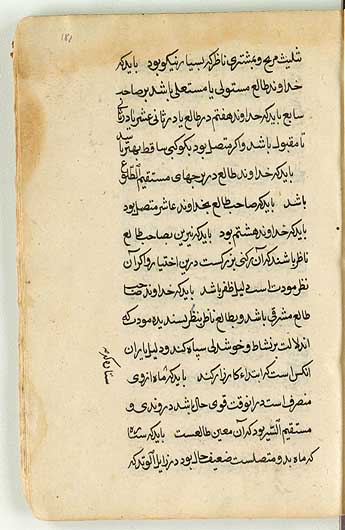 تثلیث مریخ و بمشتری ناظر که بسیار نیکو بود باید که
خداوند طالع مستولی یا مستعلی باشد بر صاحب
سابع باید که خداوند هفتم در طالع یا در ثانی عشر یا در ثانی
تا مقبول باشد واکر متصل بود بکوکبی ساقط بهتر باشد
باید که خداوند طالع در برجهای مستقیم الطلوع
باشد باید که صاحب طالع بخداوند عاشر متصل بود
باید که خداوند هشتم بود باید که نیرین بصاحب طالع
ناظر باشند که آن رکنی بزرکست درین اختیار و اکر آن
نظر مودت است دلیل ظفر باشد باید که خداوند صاحب
طالع مشرقی باشد و بطالع ناظر بنظر پسندیده مودت که
آن دلالت بر نشاط و خوشدلی سپاه کند و دلیل یاران
انکس است که ابتداء کارزار کند باید که ماه از وی
منصرف است در آن وقت قوی حال باشد در وندی و
مستقیم السیر بود که آن معین طالعست باید که ستاره
که ماه بدو متصلست ضعیف حال بود در زایل الوتد که